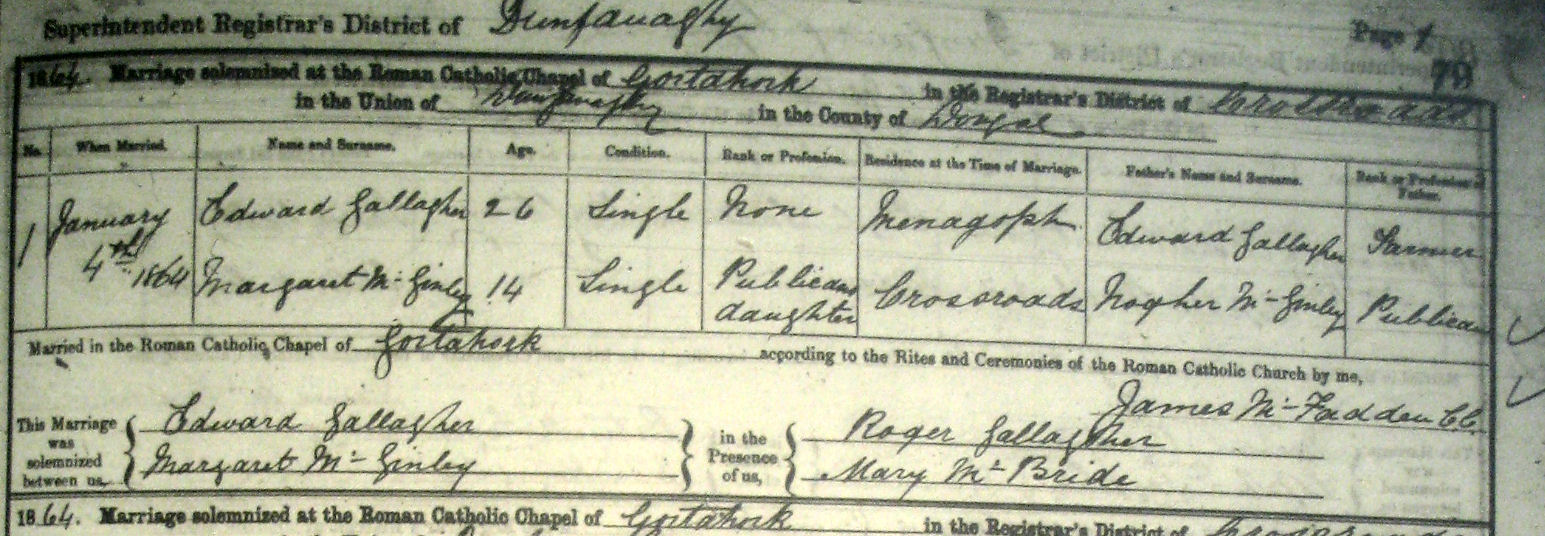 Superintendent Registrar's District of Dunfanaghy
Page 1
79
1864. Marriage solemnized at the Roman Catholic Chapel of Gortahork in the Registrar's District of Crossroads
in the Union of Dunfanaghy in the County of Donegal
No. When Married. Name and Surname. Age. Condition. Rank or Profession. Residence at the Time of Marriage. Father's Name and Surname. Rank or Profession of Father.
1 January 4th 1864 Edward Gallagher 26 Single None Edward Gallagher Farmer
Margaret Mc Ginley 14 Single Publicans daughter Crossroads Nogher Mc Ginley Publican
Married in the Roman Catholic Chapel of Gortahork according to the Rites and Ceremonies of the Roman Catholic Church by me,
James Mc Fadden C.C.
This Marriage was solemnized between us, Edward Gallagher in the Presence of us, Roger Gallagher
Margaret Mc Ginley Mary Mc Bride
1864. Marriage solemnized at the Roman Catholic Chapel of Gortahork in the Registrar's District of Crossroads